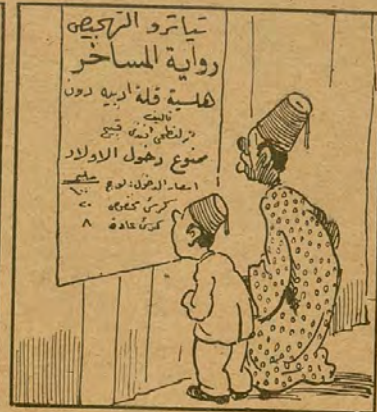 تياترو التهجيص
رواية المساخر
هلسية قلة ادبيه دون
تأليف
افندى قبيح
ممنوع دخول الاولاد
اسعار الدخول: لوج ١٠٠ مليم
كرسى مخصوص ٢٠
كرسى عادة ٨